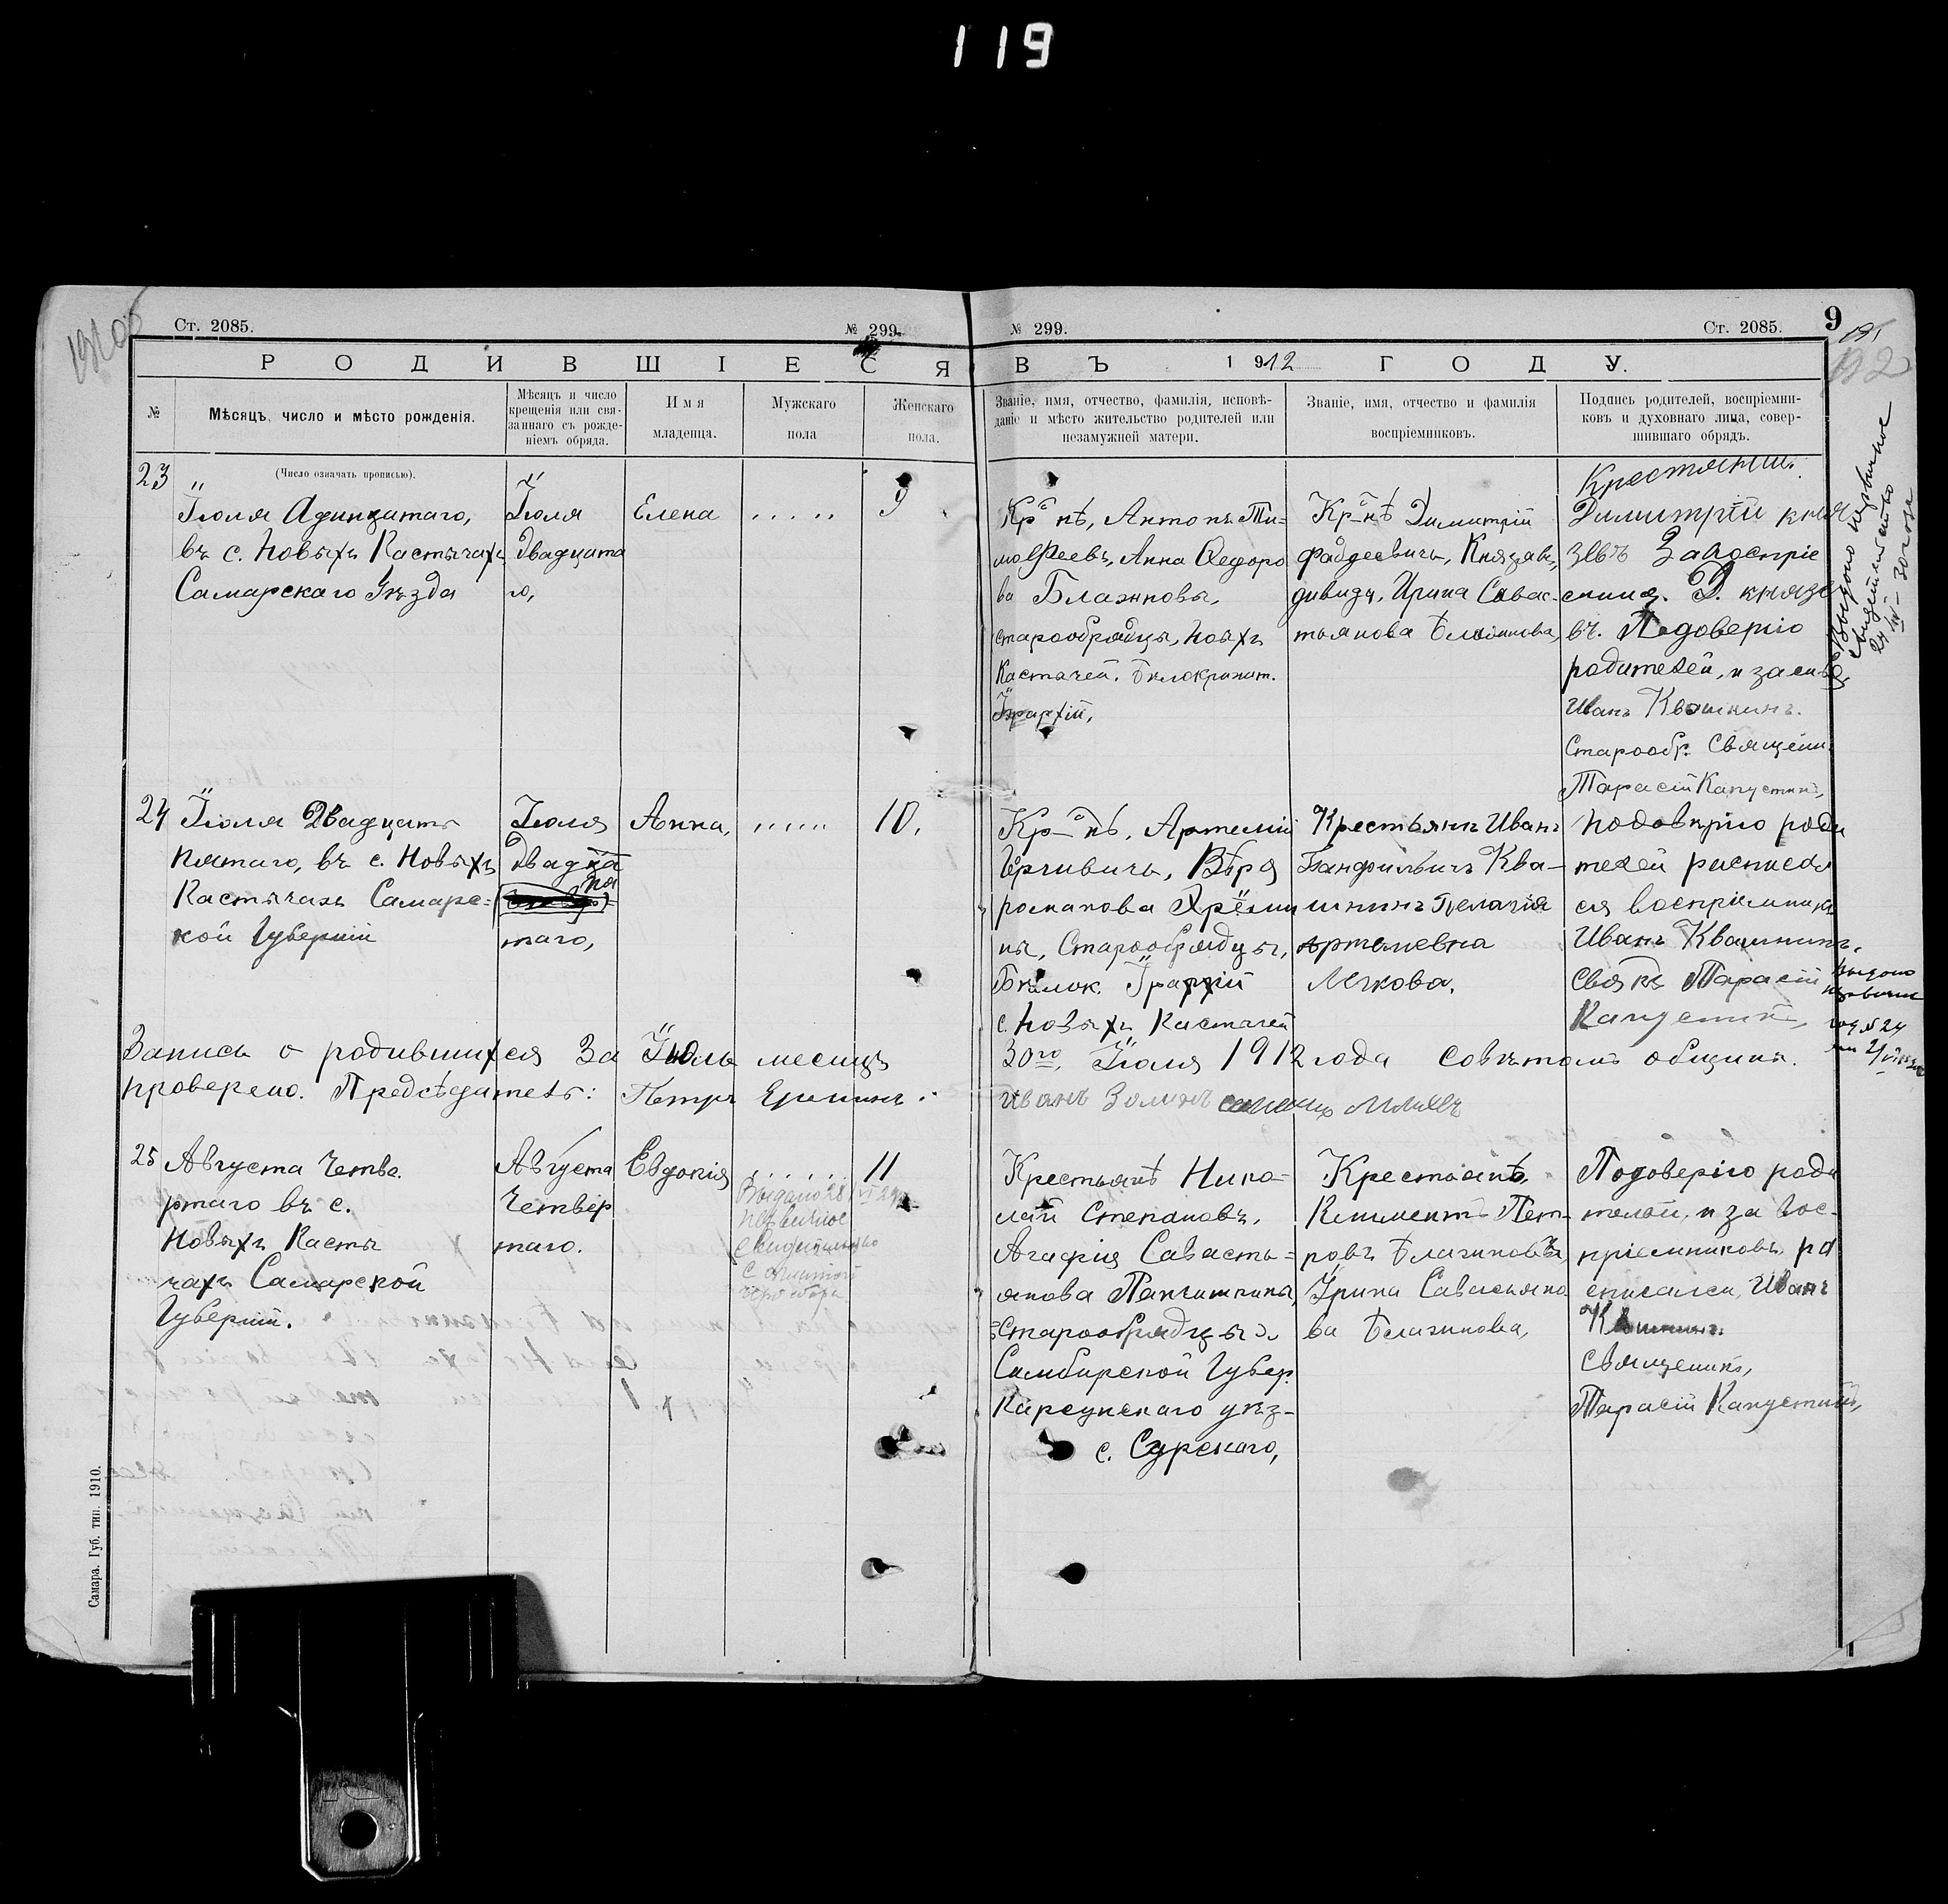 119
Ст. 2085.
№ 299.
№ 299.
Ст. 2085.
9
РОДИВШІЕСЯ
ВЪ 1912 ГОДУ.
№
Мѣсяцъ, число и мѣсто рожденія.
Мѣсяцъ и число
крещенія или свя-
заннаго съ рожде-
ніемъ обряда.
Имя
младенца.
Мужскаго
пола
Женскаго
пола.
Званіе, имя, отчество, фамилія, исповѣ-
даніе и мѣсто жительство родителей или
незамужней матери.
Званіе, имя, отчество и фамилія
воспріемниковъ.
Подпись родителей, воспріемни-
ковъ и духовнаго лица, совер-
шившаго обрядъ.
(Число означать прописью).
23
Іюля Адинцатаго,
въ с. Новыхъ Кастычахъ
Самарскаго Уѣзда
Іюля
Двадцата
го,
Елена
. . . . .
9
Кр-нѣ, Антонъ Ти=
моѳеевъ, Анна Ѳедоро
ва Блажновы,
старообрядцы, Новыхъ
Кастычей. Бѣлокринит.
Іерархій,
Кр-нѣ Димитрій
Фаддеевичъ, Князевъ,
дивица, Ирина Савас-
тьянова
Крестьянин.
Димитрій княз
зевъ За
Д. князе
въ. Подоверію
родителей, и за
Иванъ Квашнинъ.
Старообр. Священ.
Тарасій Капустинъ,
Выдано первичное
свидѣтельство
24
Іюля Двадцать
пятаго, въ с. Новыхъ
Кастычахъ Самарс=
кой Губерніи
Іюля
Двадца
пя
таго,
Анна,
. . . . . .
10.
Кр-нѣ, Артемій
Вѣра
романова
ны, Старообрядцы,
Бѣлок.
с. Новыхъ Кастычей
Крестьянъ Иванъ
Панфильвичъ Ква-
шнинъ Пелагія
Артемевна
Лечкова.
Подовѣрію роди
телей росписал
ся воспріемникъ
Иванъ Квашнинъ,
Свя-къ Тарасій
Капустинъ,
Запись о родившихся За Іюль месяцъ 30го Іюля 1912 года совѣтомъ общины.
проверено. Предсѣдатель: Петръ Ерминъ. Иванъ Золинъ
25
Августа Четве
ртаго въ с.
Новыхъ Касты
чахъ Самарской
Губерніи.
Августа
Четвер
таго.
Евдокія
. . . . . .
11
Выдано
первичное
Крестьянѣ Нико-
лай Степановъ,
Агафия Савасть=
янова
Старообрядцы,
Самбирской Губер.
Карсунскаго уѣз-
с. Сурскаго,
Крестьянѣ,
Климентъ Пет-
ровъ
Ірина Савастьяно
ва
Подоверію роди
телей, и за Вос-
пріемниковъ, ро
списался, Иванъ
Квашнинъ.
Священикъ,
Тарасій Капустинъ,
Самара. Губ. тип. 1910.